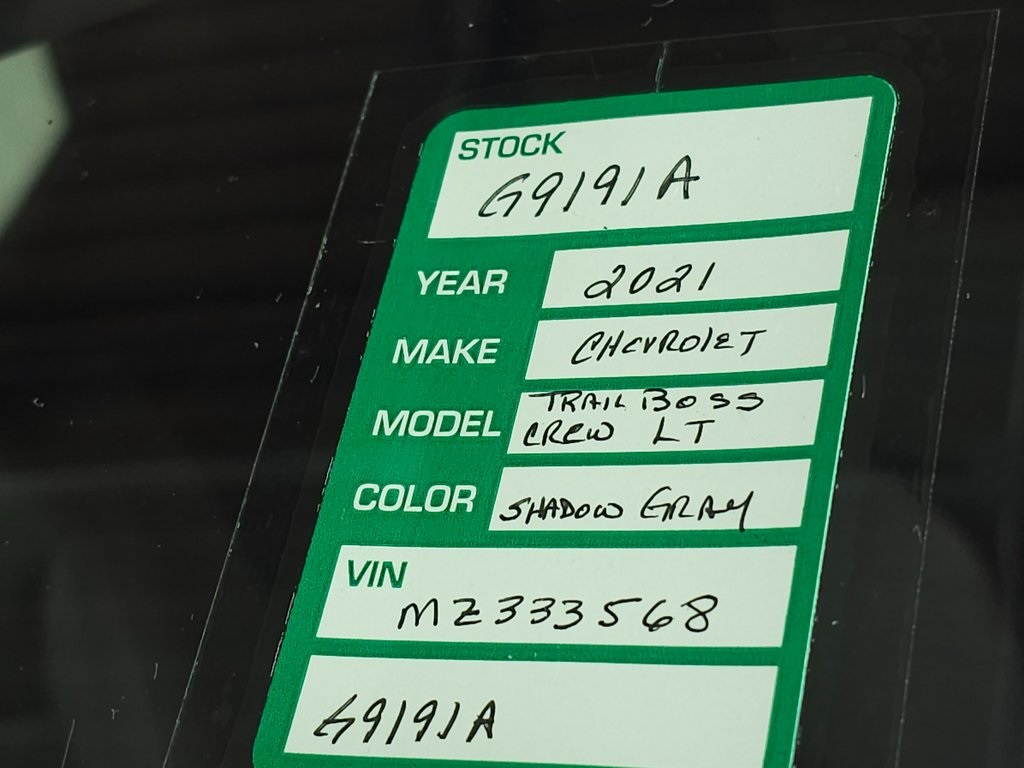 STOCK
G9191A
YEAR 2021
MAKE CHEVROLET
MODEL TRAIL BOSS
CREW LT
COLOR SHADOW GRAY
VIN
MZ333568
G9191A